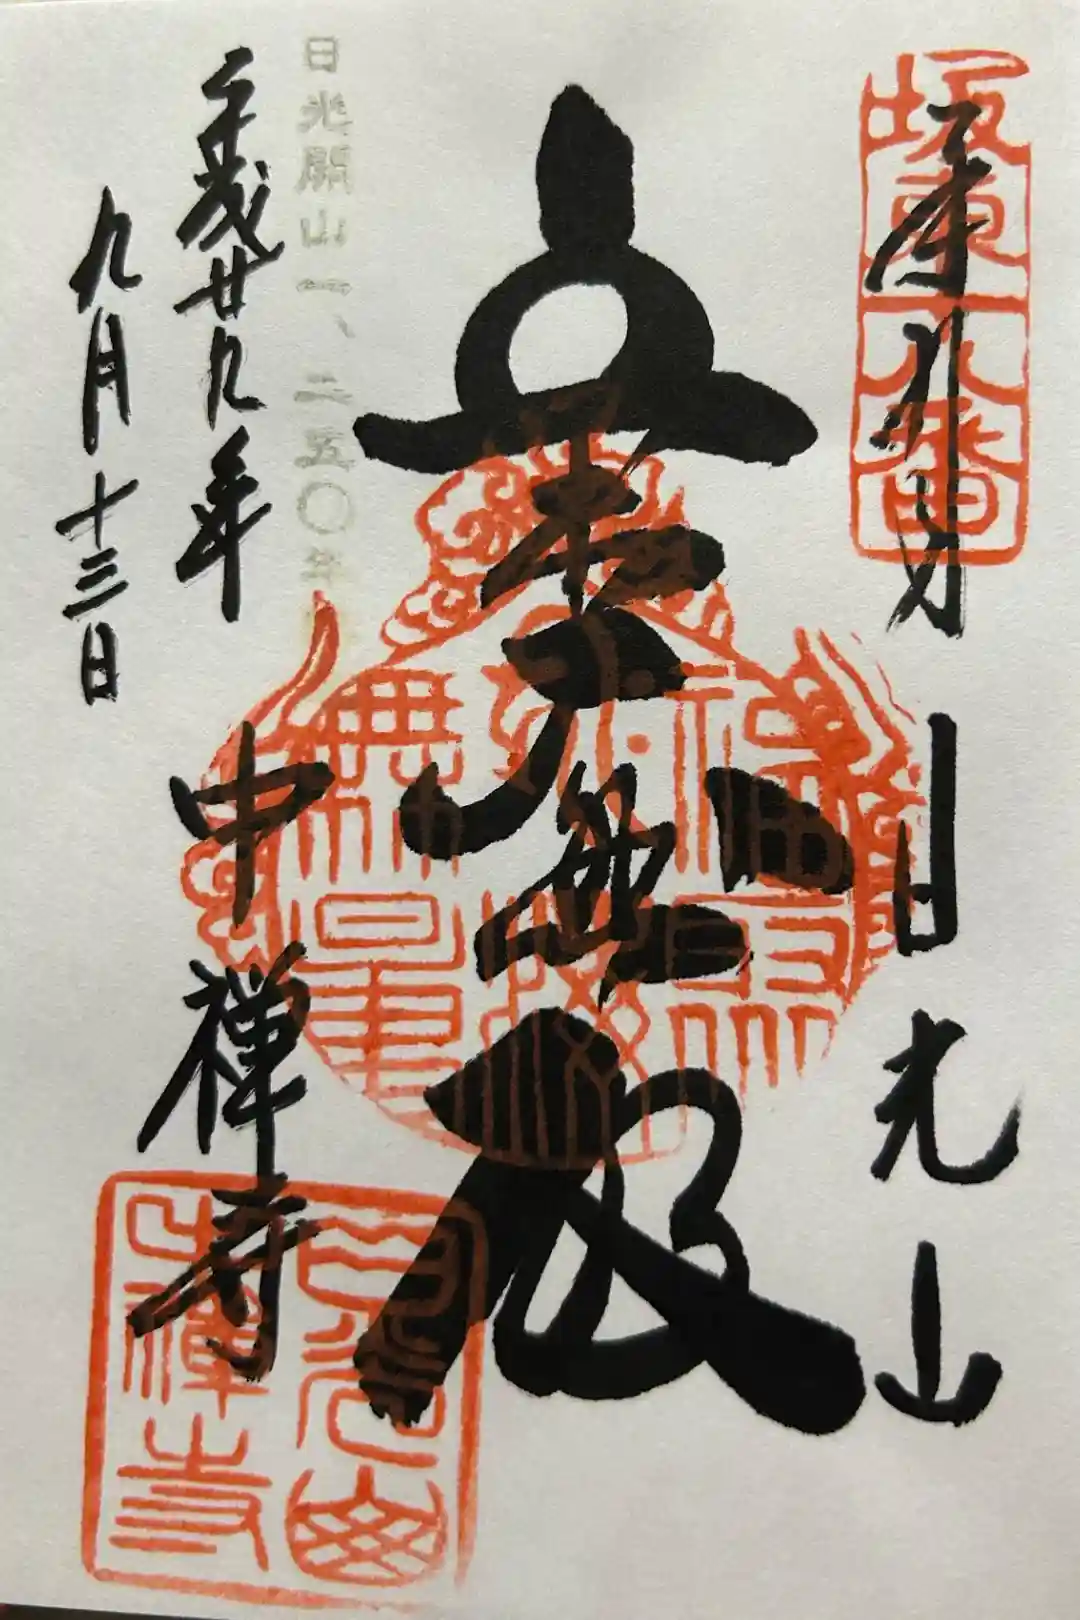 坂東十八番
奉拝
日光山
福聚海無量
日光開山一、二五〇年
平成廿九年
九月十三日
中禅寺
日光山
中禪寺